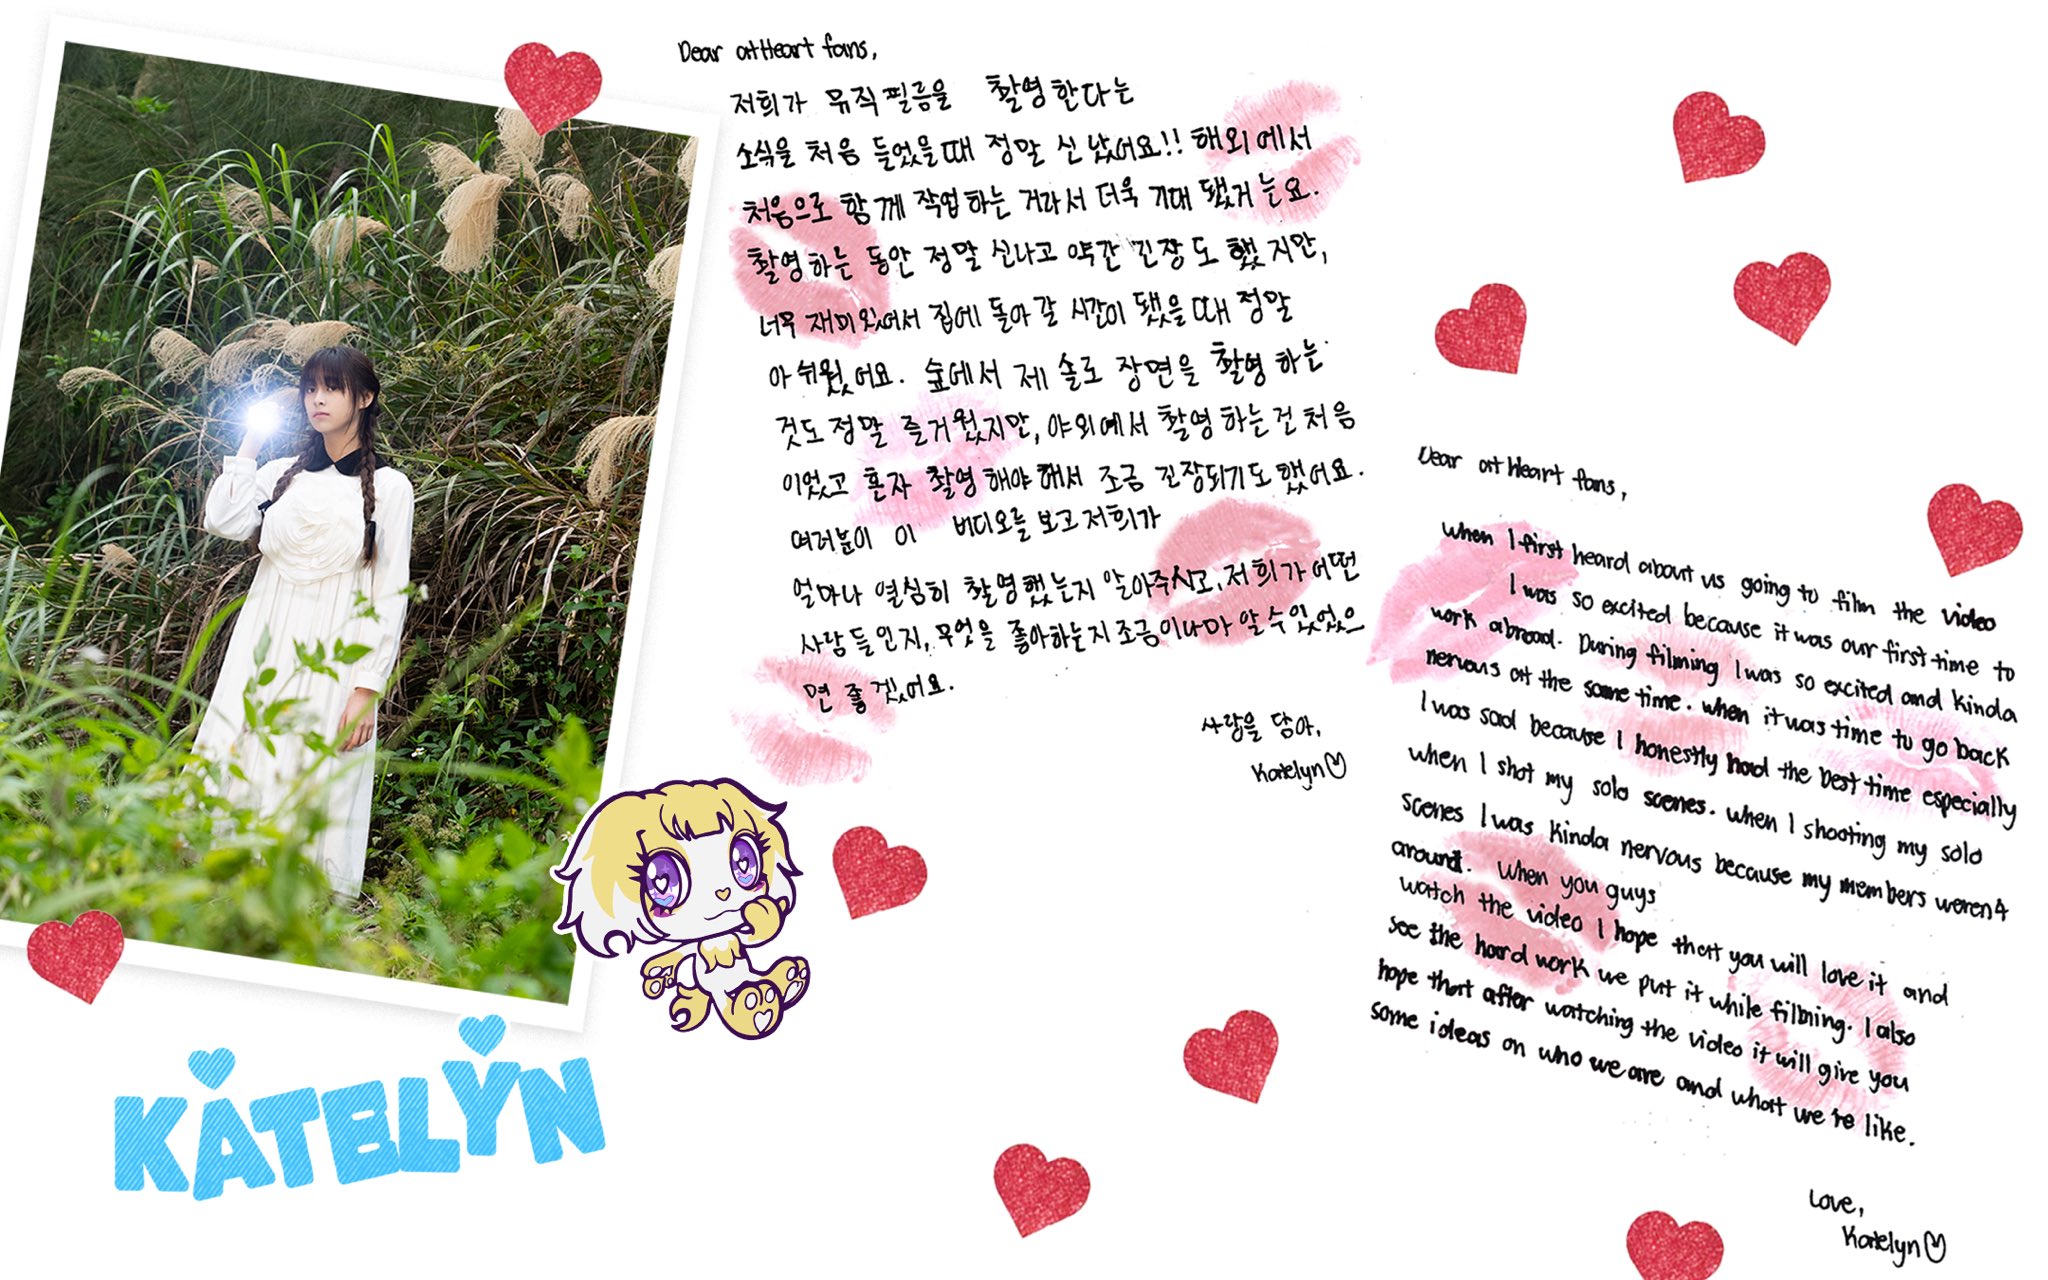 Dear atHeart fans,
저희가 뮤직필름을 촬영한다는
소식을 처음 들었을때 정말 신났어요!! 해외에서
처음으로 함께 작업하는 거라서 더욱 기대됐거든요.
촬영하는 동안 정말 신나고 약간 긴장도 했지만,
너무 재미있어서 집에 돌아갈 시간이 됐을때 정말
아쉬웠어요. 숲에서 제 솔로 장면을 촬영하는
것도 정말 즐거웠지만, 야외에서 촬영하는건 처음
이었고 혼자 촬영해야해서 조금 긴장되기도 했어요.
여러분이 이 비디오를 보고 저희가
얼마나 열심히 촬영했는지 알아주시고, 저희가 어떤
사람들인지, 무엇을 좋아하는지 조금이나마 알 수 있었으
면 좋겠어요.
사랑을 담아,
Katelyn♡
Dear atHeart fans,
When I first heard about us going to film the video
I was so excited because it was our first time to
work abroad. During filming I was so excited and kinda
nervous at the same time. when it was time to go back
I was sad because I honestly had the best time especially
when I shot my solo scenes. when I shooting my solo
scenes I was kinda nervous because my members weren4
around. When you guys
watch the video I hope that you will love it and
see the hard work we put it while filming. I also
hope that after watching the video it will give you
some ideas on who we are and what we're like.
Love,
Katelyn♡
KATELYN